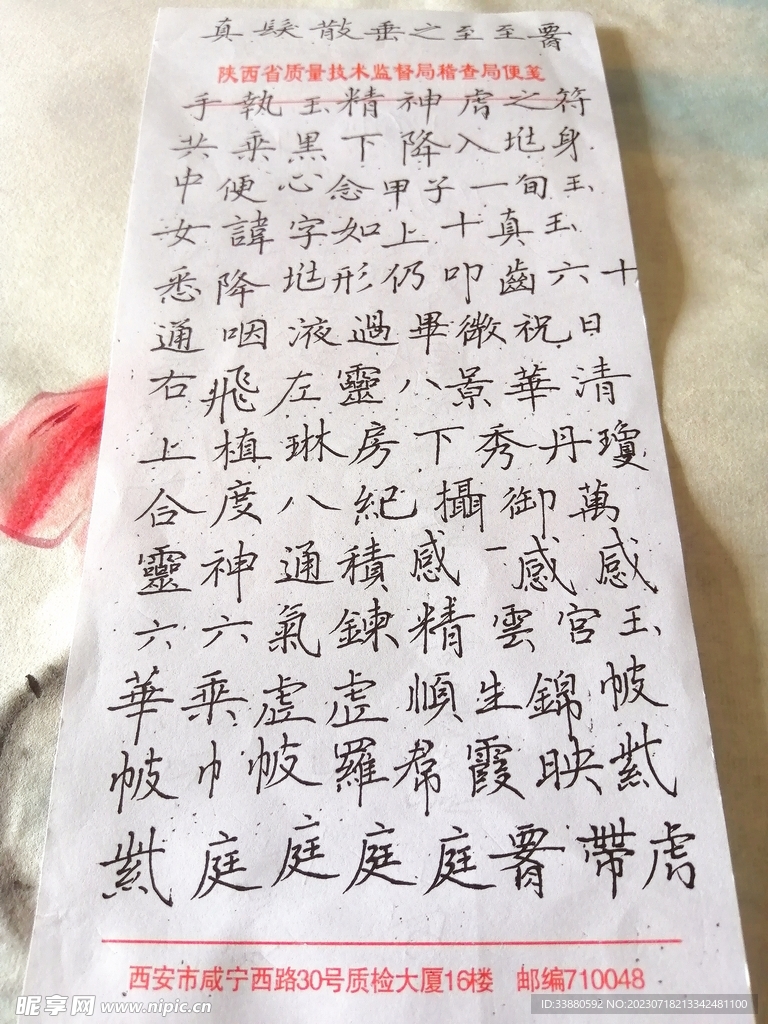 真髮散垂之至至𦝫
陕西省质量技术监督局稽查局便笺
手執玉精神虎之符
共乘黑下降入坒身
中便心念甲子一旬玉
女諱字如上十真玉
悉降坒形仍叩齒六十
通咽液過畢微祝日
右飛左靈八景華清
上植琳房下秀丹瓊
合度八紀攝御萬
靈神通積感一感感
六六氣鍊精雲宮玉
華乘虛虛順生錦帔
帔巾帔羅帬霞映紫
紫庭庭庭庭𦝫帶虎
西安市咸宁西路30号质检大厦16楼 邮编710048
昵享网 www.nipic.cn
ID:33880592 NO:20230718213342481100